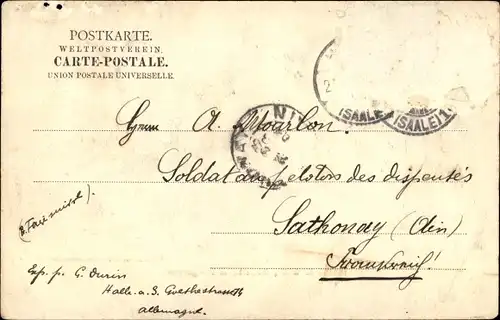 POSTKARTE.
WELTPOSTVEREIN.
CARTE-POSTALE.
UNION POSTALE UNIVERSELLE.
(SAALE)
(SAALE) 1
A. Mourlon.
Soldat aux pelotons des dispensés
Sathonay (Ain)
Frankreich!
Exp. p. G. Durin
Halle a. S. Goethestrasse
Allemagne.